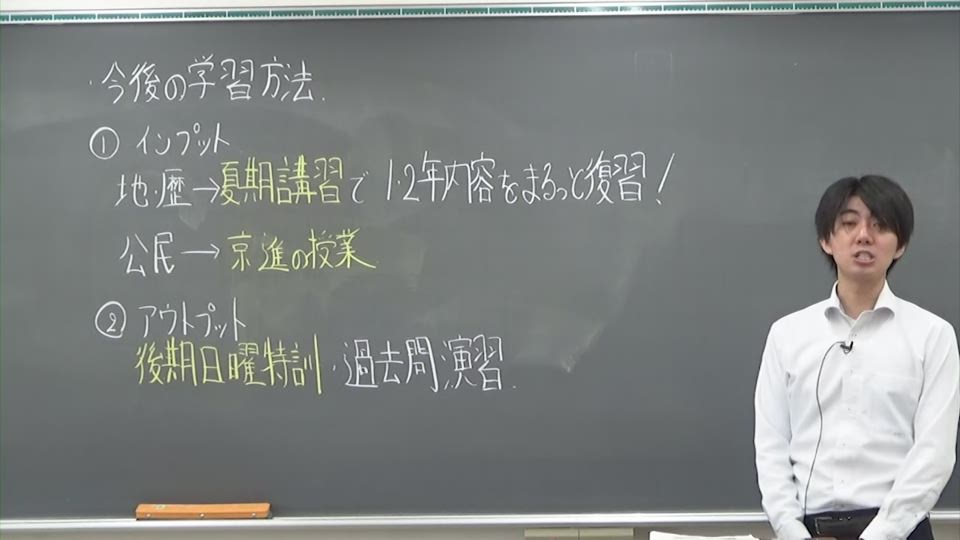 ・今後の学習方法.
① インプット
地・歴→夏期講習で 1・2年内容をまるっと復習!
公民→京進の授業
② アウトプット
後期日曜特訓・過去問演習.